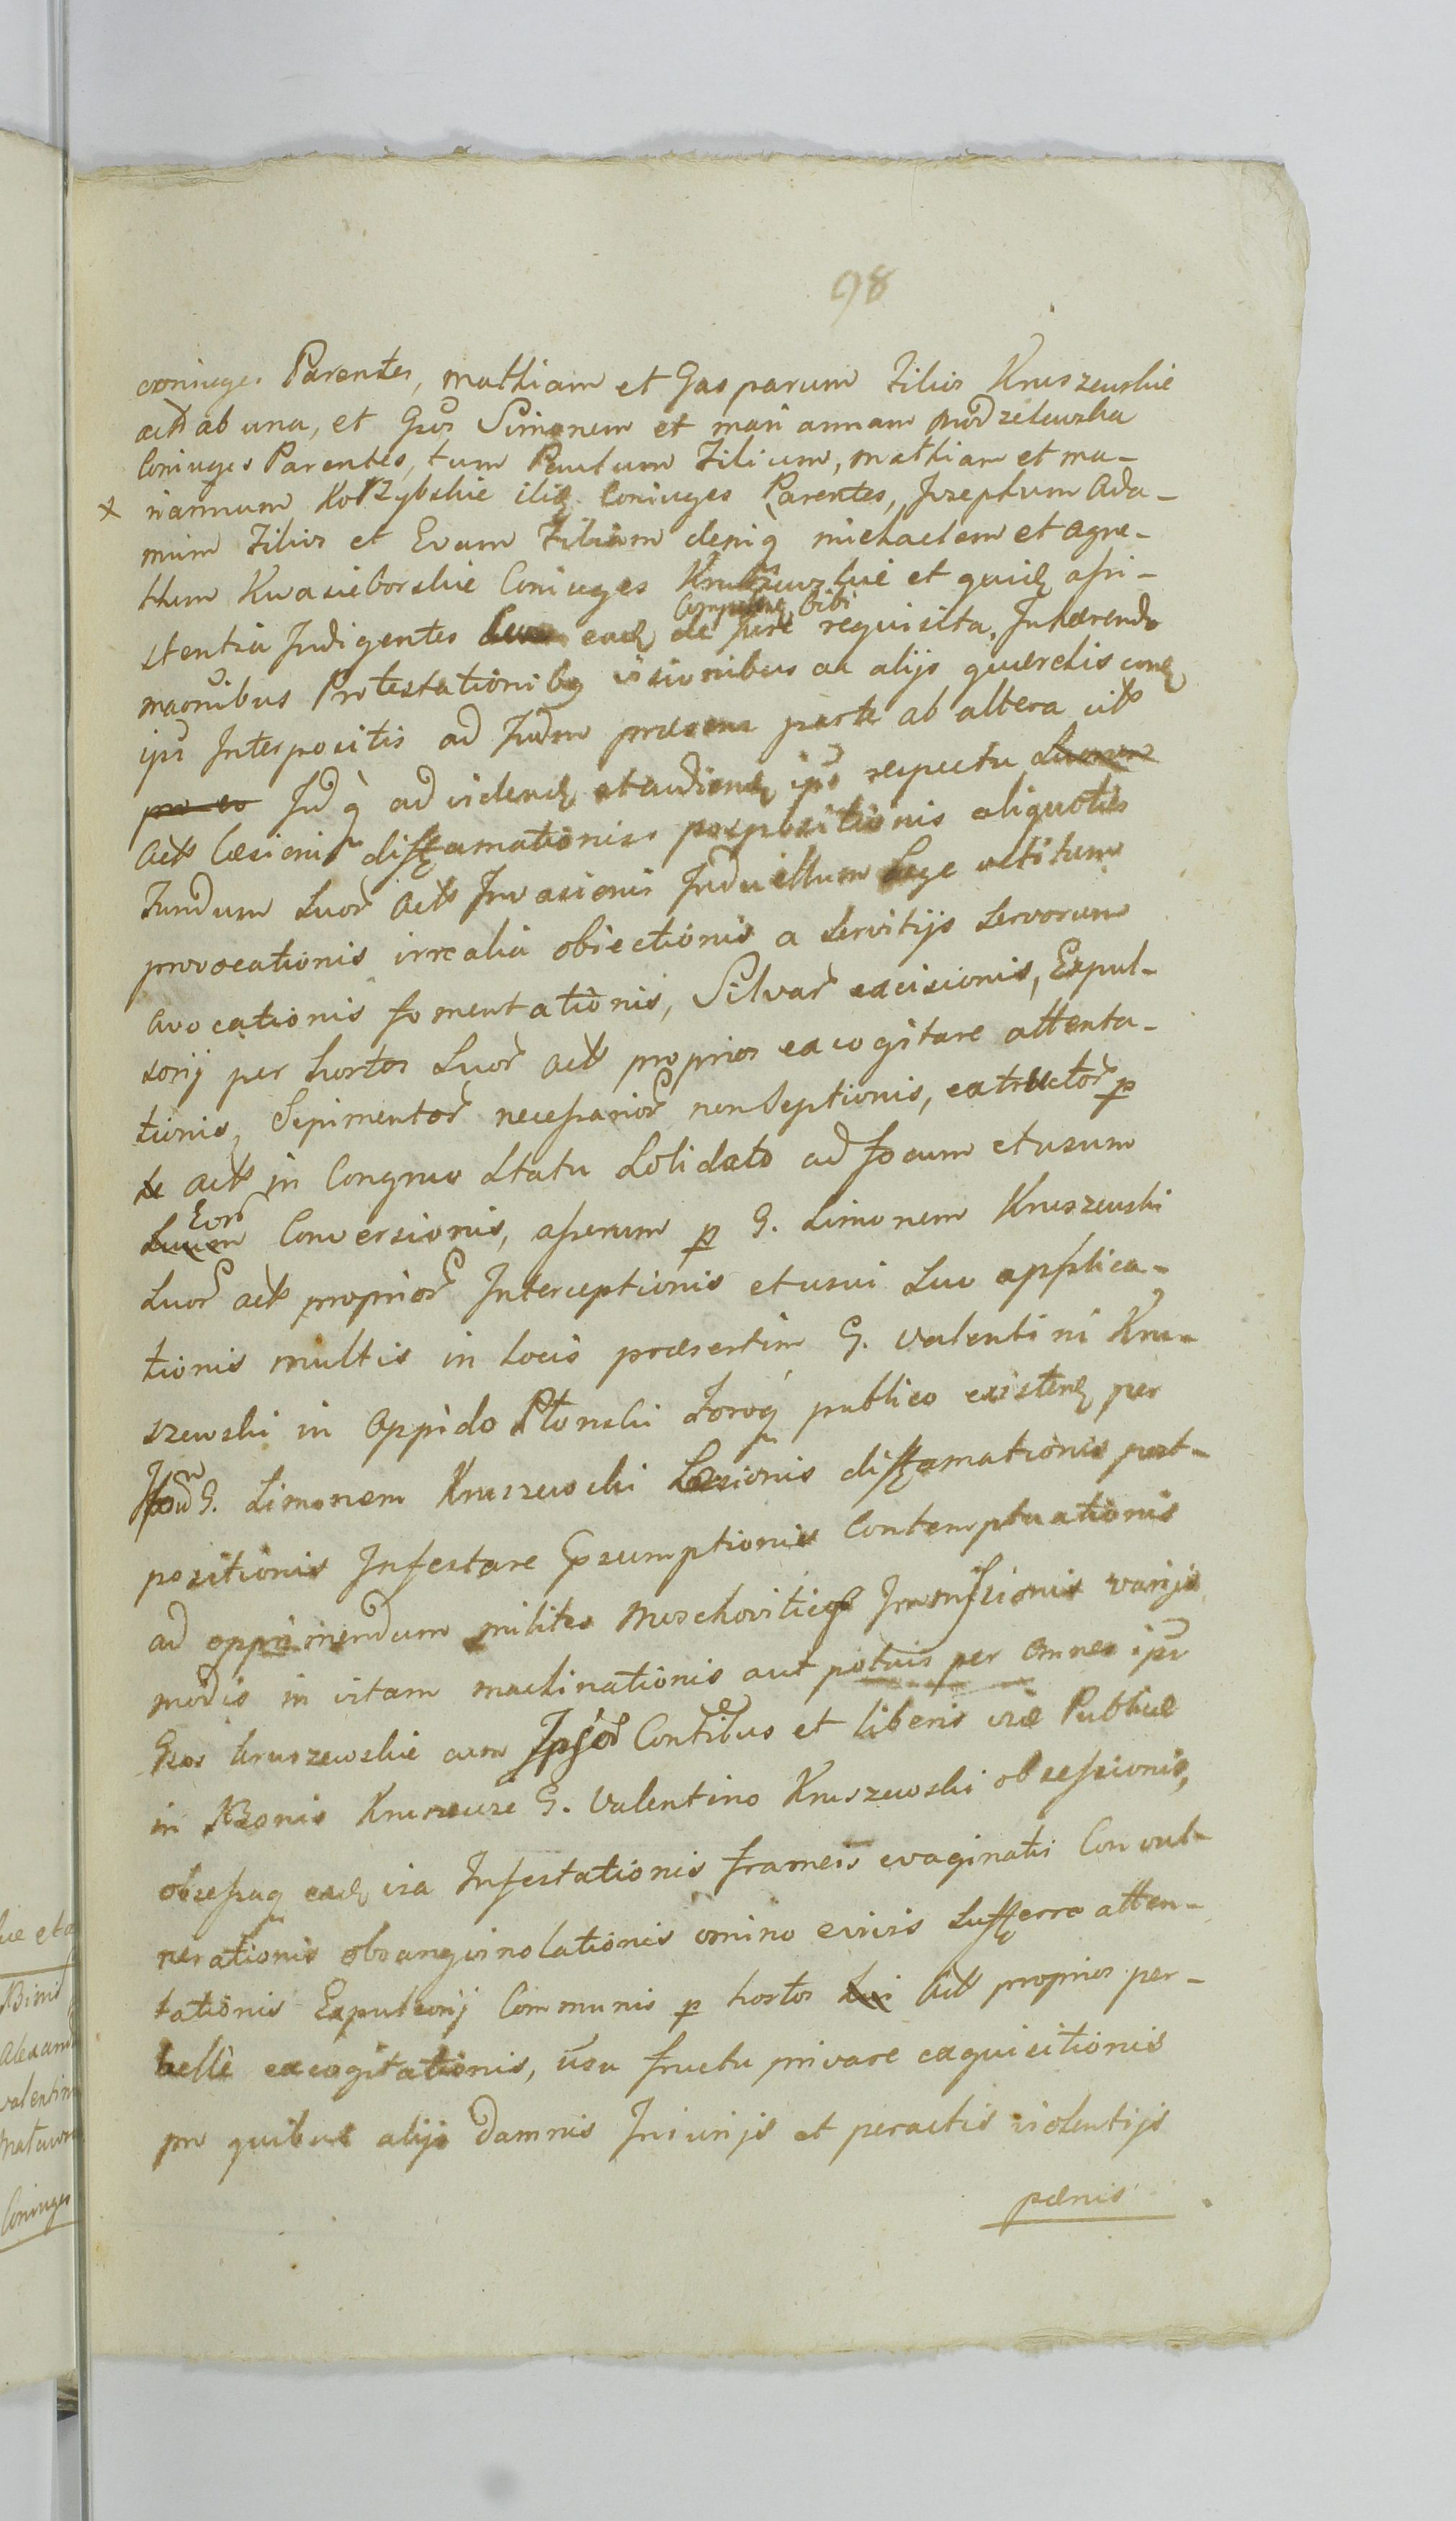 98
coniuges Parentes, mathiam et Gasparum Filios Kruszewskie
actt ab una, et Gsos Simonem et mariannam modzelewska
Coniuges Parentes, tum Paulum Filium, mathiam et ma-
x riannam Korzybskie itiq Coniuges Parentes, Josephum Ada-
mum Filios et Evam Filiam deniq michaelem et Agne-
them Kwasieborskie Coniuges Kruszewskie et quid assi-
stentia Indigentes eade de Jure requisita. Inhærendo
Competens Sibi
maonibus Protestationibq isionibus ac alijs quærelis cone
ips Interpositis ad Judm præsens parte ab altera citt
pro eo Judq ad videnđ et audiend ips respectu
Actt læsionis diffamationis postpositionis aliquoties
Fundum Suor Actt Invasionis In duellum Lege vetitum
provocationis irrealia obiectionis a servitijs servorum
avocationis fomentationis, Silvar excisionis, Expul-
sorij per hortos Suor Actt proprios excogitare attenta-
tionis, Sepimentor necessarior non Septionis, extructor p
se actt in Congruo Statu Solidato ad focum et usum
Suum Eor Conversionis, asserum p G. Simonem Kruszewski
Suor actt proprior Interceptionis et usui Suo applica-
tionis multis in locis præsertim G. Valentini Kru-
szewski in Oppido Płonski Foroq publico existenđ per
G. Simonem Kruszewski Læsionis diffamationis post-
positionis Infestare Præsumptionis Contemptuationis
ad opprimendum milites moschoviticos Immissionis varijs
modis in vitam machinationis aut potius per omnes ips
Gsos Kruszewskie cum Ipsor Contibus et liberis viæ Publicæ
in Bonis Kruszewo G. Valentino Kruszewski obsessionis,
obsessaq eade via Infestationis frameis evaginatis Convul-
nerationis obsanguinolationis omino e vivis Sufferre atten-
tationis Expulsorij Communis p hortos Sui Actt proprios per-
belle excogitationis, usu fructu privare exquisitionis
pro quibus alijs damnis Iniurijs et peractis violentijs
pænis